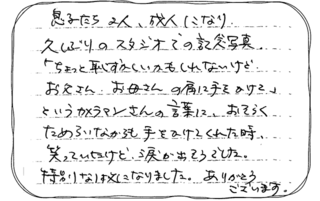 息子たち2人、成人になり
久しぶりのスタジオでの記念写真。
「ちょっと恥ずかしいかもしれないけど
お父さん、お母さんの肩に手をかけて」
というカメラマンさんの言葉に、おそらく
ためらいながらも手をかけてくれた時、
笑っていたけど、涙が出そうでした。
特別な1枚になりました。ありがとう
ございます。